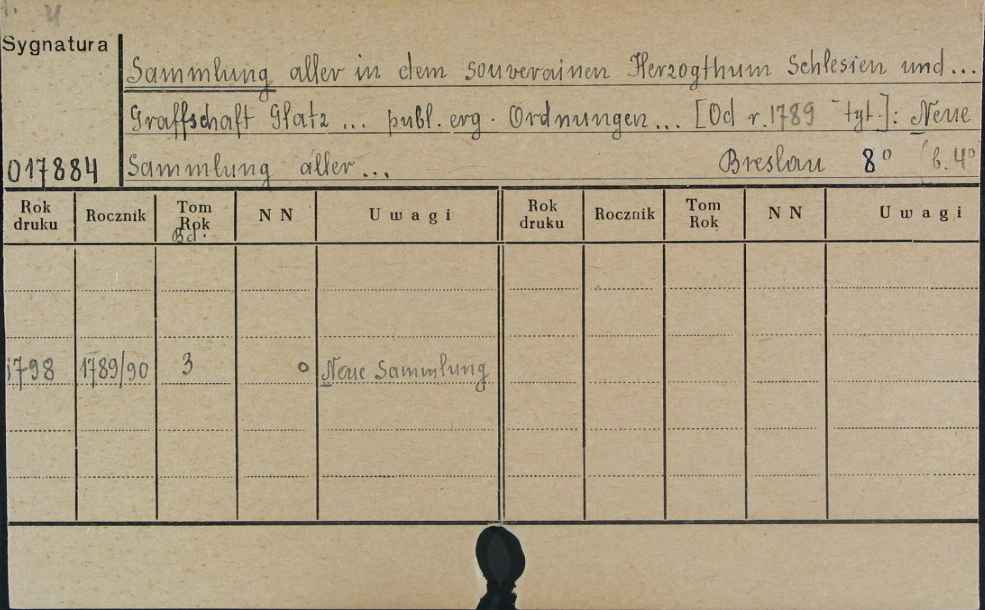 Sygnatura
Sammlung aller in dem souverainen Herzogthum Schlesien und...
Graffschaft Glatz ... publ. erg. Ordnungen... [Od r. 1789 - tyt.]: Neue
017884 Sammlung aller... Breslau 8° (b. 4°
Rok druku Rocznik Tom Rok Bd. N N Uwagi Rok druku Rocznik Tom Rok N N Uwagi
1798 1789/90 3 o Neue Sammlung